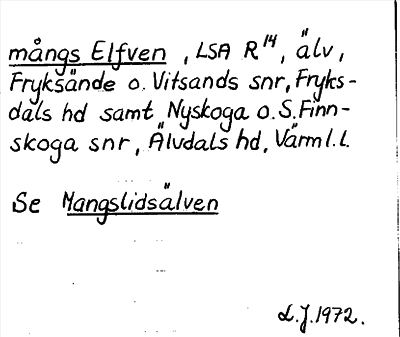 mångs Elfven, LSA R14, älv,
Fryksände o. Vitsands snr, Fryks-
dals hd samt Nyskoga o. S. Finn-
skoga snr, Älvdals hd, Värml. l.
Se Mangslidsälven
L.J. 1972.